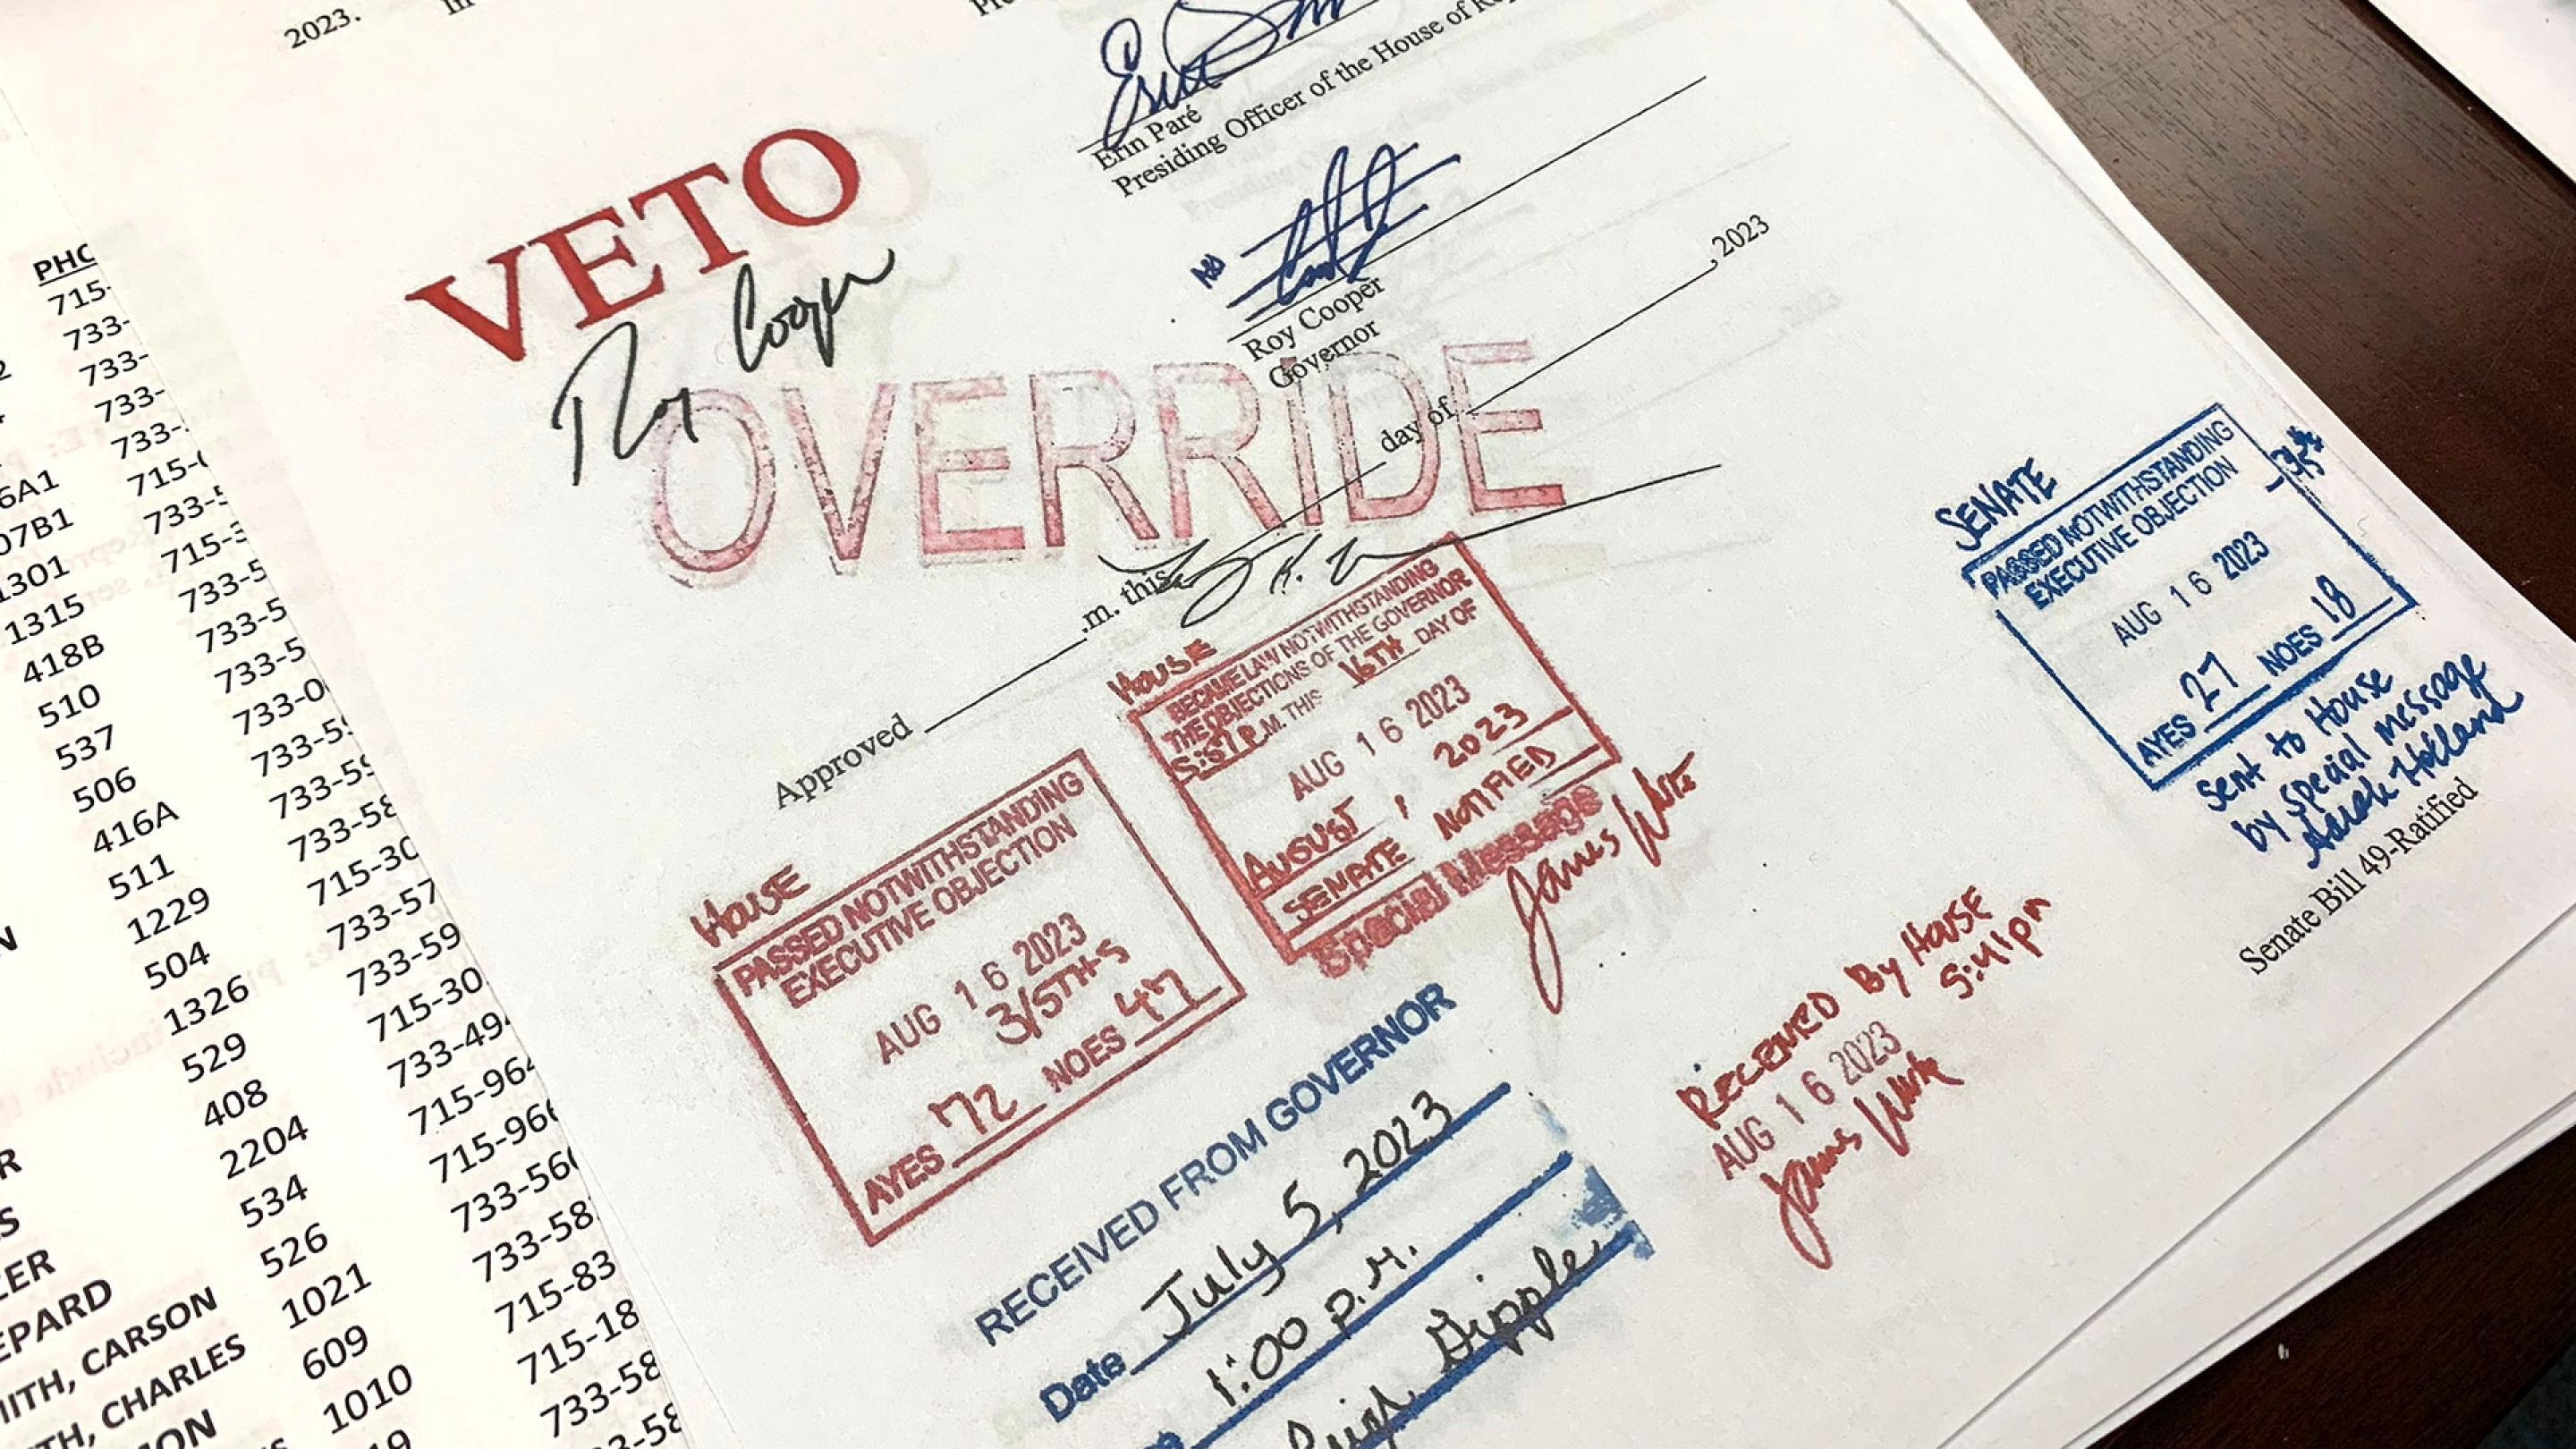 2023.
In
Erin Paré
Presiding Officer of the House of
VETO
Roy Cooper
No
Roy Cooper
Governor
OVERRIDE
Approved ____ .m. this ____ day of ____, 2023
HOUSE
PASSED NOTWITHSTANDING
EXECUTIVE OBJECTION
AUG 16 2023
3/5TH-S
AYES 72 NOES 47
HOUSE
BECAME LAW NOTWITHSTANDING
THE OBJECTIONS OF THE GOVERNOR
5:57 P.M. THIS 16TH DAY OF
AUG 16 2023
AUGUST, 2023
SENATE NOTIFIED
Special Message
James White
SENATE
PASSED NOTWITHSTANDING
EXECUTIVE OBJECTION
AUG 16 2023
AYES 27 NOES 18
Sent to House
by special message
Sarah Holland
Senate Bill 49-Ratified
RECEIVED By HOUSE
AUG 16 2023 5:41pm
James White
RECEIVED FROM GOVERNOR
Date July 5, 2023
1:00 p.m.
PHO
715-
733-
733-
733-
733-
715-0
07B1 733-5
1301 715-3
1315 733-5
418B 733-5
510 733-5
537 733-0
506 733-59
416A 733-59
511 733-58
1229 715-30
504 733-57
1326 733-59
529 715-30
408 733-494
2204 715-964
534 715-966
526 733-566
EPARD 1021 733-58
ITH, CARSON 609 715-83
TH, CHARLES 1010 715-18
ON 733-58